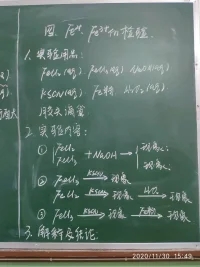 四. Fe²⁺ Fe³⁺的检验.
1. 实验用品:
FeCl₂(aq) FeCl₃(aq) NaOH(aq)
KSCN(aq) Fe粉 H₂O₂(aq)
胶头滴管
2. 实验内容:
① { FeCl₂ FeCl₃ + NaOH → { 现象: 现象:
② FeCl₃ KSCN→ 现象
FeCl₂ KSCN→ 现象 H₂O₂→ 现象
③ FeCl₃ KSCN→ 现象 Fe粉→ 现象
3. 解释及结论:
2020/11/30 15:49